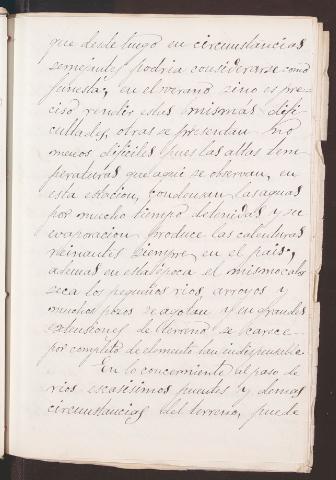 que desde luego en circunstancias
semejantes podria considerarse como
funesta; en el verano sino es pre-
ciso rendir estas mismas difi-
cultades, otras se presentan no
menos dificiles pues las altas tem-
peraturas que aqui se observan, en
esta estacion, condensan las aguas
por mucho tiempo detenidas y su
evaporacion produce las calenturas
reinantes siempre, en el pais;
ademas en esta época el mismo calor
seca los pequeños rios, arroyos y
muchos pozos se agotan y en grandes
extensiones de terreno se carece
por completo de elemento tan indispensable.
En lo concerniente al paso de
rios escasisimos puentes y demas
circunstancias del terreno, puede